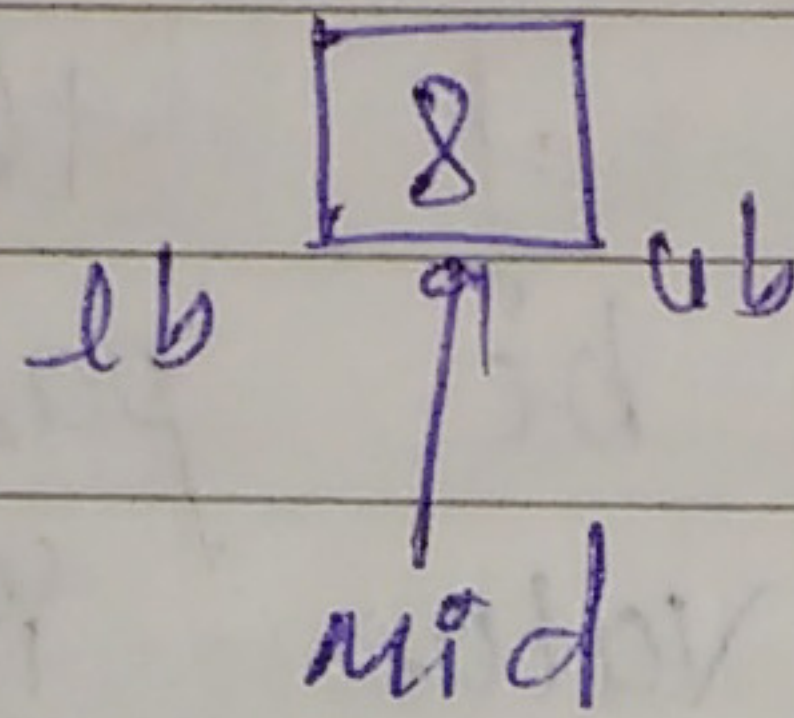 8
lb ub
mid